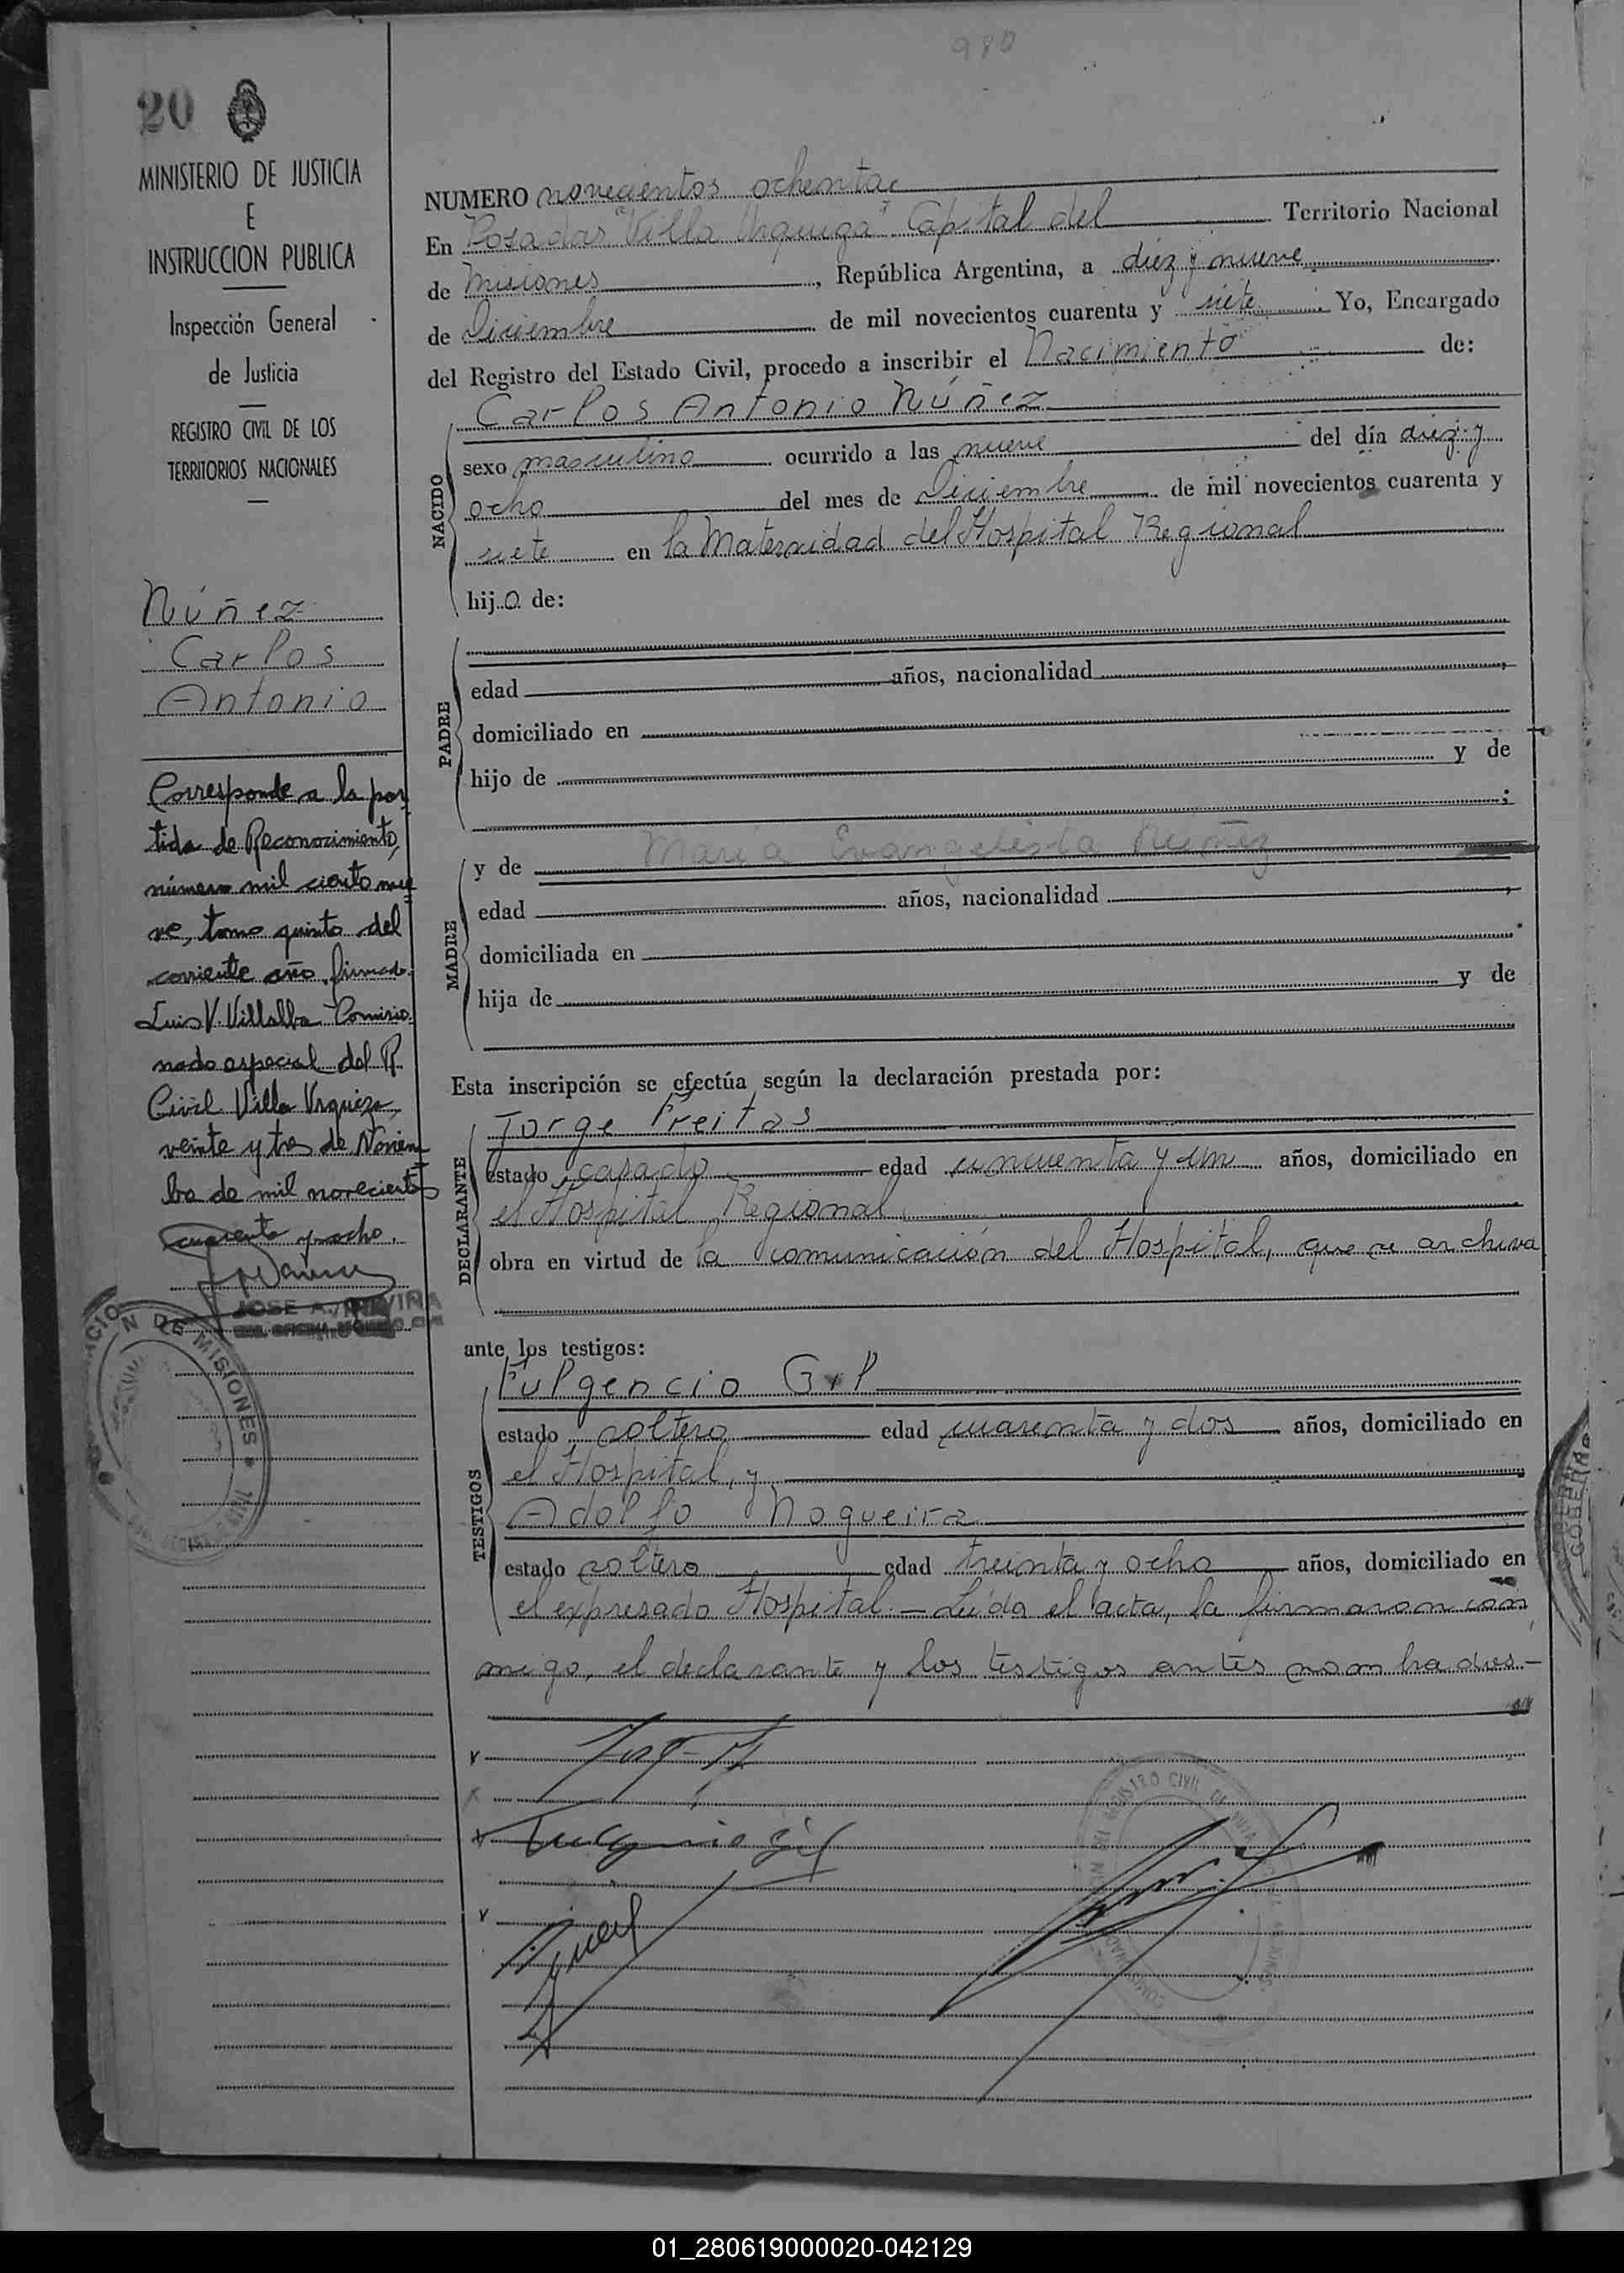 980
20
MINISTERIO DE JUSTICIA
E
INSTRUCCION PUBLICA
Inspección General
de Justicia
REGISTRO CIVIL DE LOS
TERRITORIOS NACIONALES
Núñez
Carlos
Antonio
Corresponde a la par
tida de Reconocimiento,
número mil ciento nue
ve, tomo quinto del
corriente año, firmado
Luis V. Villalba Comisio
nado especial del R.
Civil Villa Urquiza,
veinte y tres de Noviem
bre de mil novecientos
cuarenta y ocho.
JOSE A.
DE MISIONES
NUMERO novecientos ochenta
En Posadas "Villa Urquiza" Capital del Territorio Nacional
de Misiones, República Argentina, a diez y nueve
de Diciembre de mil novecientos cuarenta y siete. Yo, Encargado
del Registro del Estado Civil, procedo a inscribir el Nacimiento de:
NACIDO
Carlos Antonio Núñez
sexo masculino ocurrido a las nueve del día diez y
ocho del mes de Diciembre de mil novecientos cuarenta y
siete en la Maternidad del Hospital Regional
hijo de:
PADRE
edad años, nacionalidad,
domiciliado en
hijo de y de
;
MADRE
y de María Evangelista Núñez
edad años, nacionalidad,
domiciliada en
hija de y de
Esta inscripción se efectúa según la declaración prestada por:
DECLARANTE
Jorge Freitas
estado casado edad cincuenta y un años, domiciliado en
el Hospital Regional,
obra en virtud de la comunicación del Hospital, que se archiva
ante los testigos:
TESTIGOS
Fulgencio Gil
estado soltero edad cuarenta y dos años, domiciliado en
el Hospital, y
Adolfo Nogueira
estado soltero edad treinta y ocho años, domiciliado en
el expresado Hospital.- Leída el acta, la firmaron con
migo, el declarante y los testigos antes nombrados.-
Fulgencio Gil
REGISTRO CIVIL
01_280619000020-042129